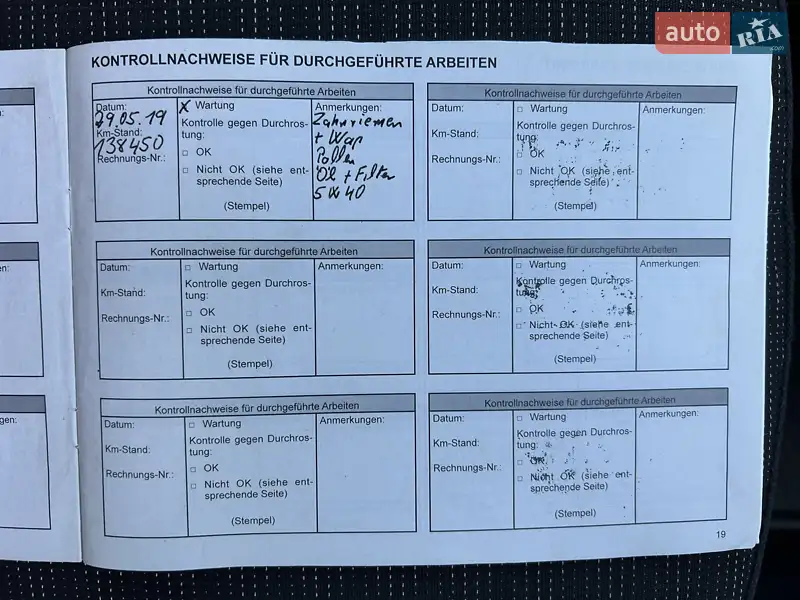 auto RIA.com
KONTROLLNACHWEISE FÜR DURCHGEFÜHRTE ARBEITEN
Kontrollnachweise für durchgeführte Arbeiten
Datum:
29.05.19
Km-Stand:
138450
Rechnungs-Nr.:
X Wartung
Kontrolle gegen Durchros-
tung:
□ OK
□ Nicht OK (siehe ent-
sprechende Seite)
(Stempel)
Anmerkungen:
Zahnriemen
+ Wap
Pollen
Öl + Filter
5W40
Kontrollnachweise für durchgeführte Arbeiten
Datum:
Km-Stand:
Rechnungs-Nr.:
□ Wartung
Kontrolle gegen Durchros-
tung:
□ OK
□ Nicht OK (siehe ent-
sprechende Seite)
(Stempel)
Anmerkungen:
Kontrollnachweise für durchgeführte Arbeiten
Datum:
Km-Stand:
Rechnungs-Nr.:
□ Wartung
Kontrolle gegen Durchros-
tung:
□ OK
□ Nicht OK (siehe ent-
sprechende Seite)
(Stempel)
Anmerkungen:
Kontrollnachweise für durchgeführte Arbeiten
Datum:
Km-Stand:
Rechnungs-Nr.:
□ Wartung
Kontrolle gegen Durchros-
tung:
□ OK
□ Nicht OK (siehe ent-
sprechende Seite)
(Stempel)
Anmerkungen:
Kontrollnachweise für durchgeführte Arbeiten
Datum:
Km-Stand:
Rechnungs-Nr.:
□ Wartung
Kontrolle gegen Durchros-
tung:
□ OK
□ Nicht OK (siehe ent-
sprechende Seite)
(Stempel)
Anmerkungen:
Kontrollnachweise für durchgeführte Arbeiten
Datum:
Km-Stand:
Rechnungs-Nr.:
□ Wartung
Kontrolle gegen Durchros-
tung:
□ OK
□ Nicht OK (siehe ent-
sprechende Seite)
(Stempel)
Anmerkungen:
19